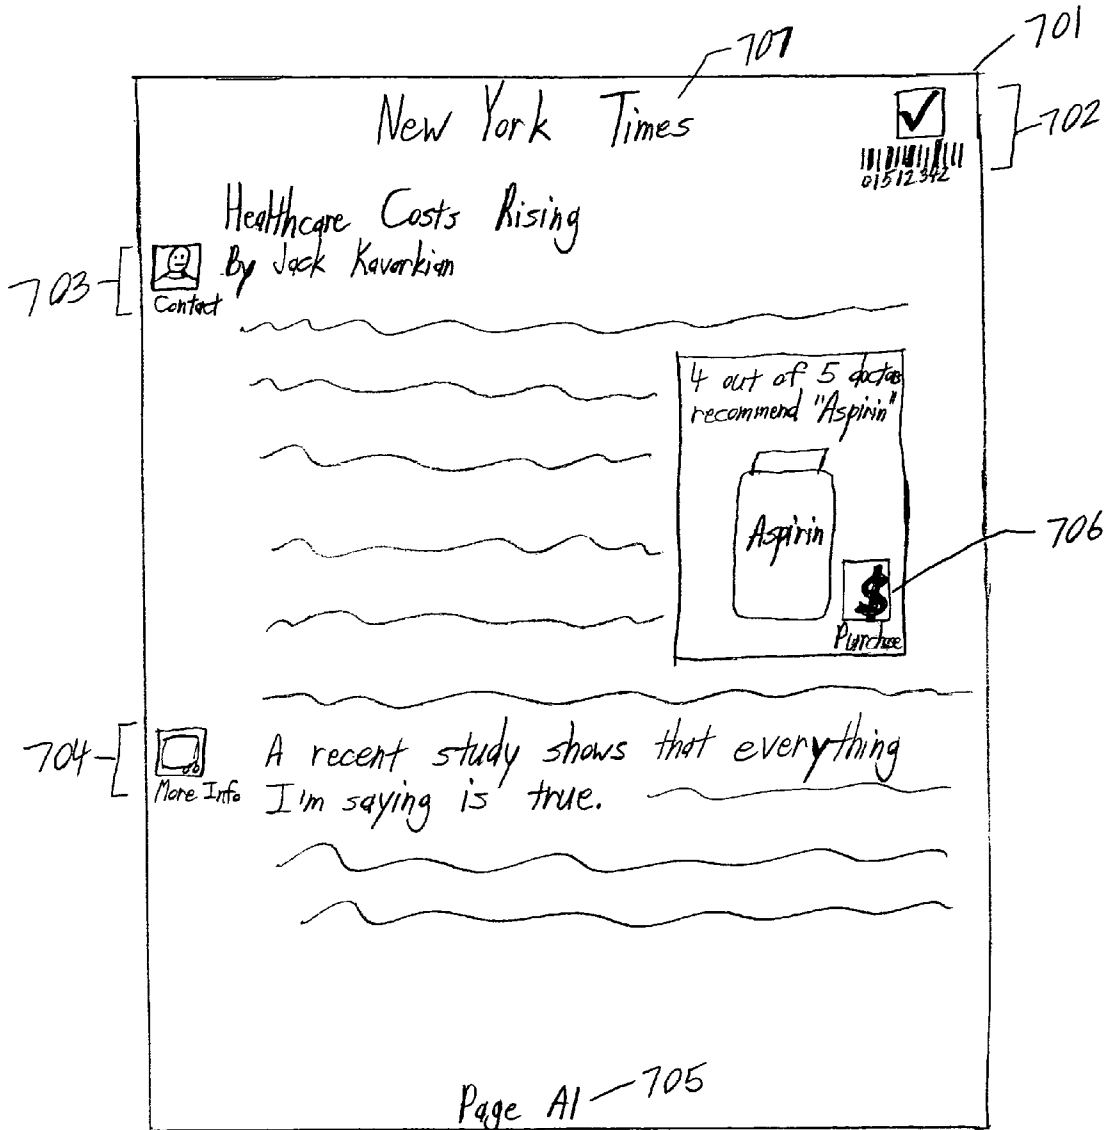 701
707
New York Times
702
01512342
Healthcare Costs Rising
703
By Jack Kavorkian
Contact
4 out of 5 doctors
recommend "Aspirin"
Aspirin
706
$
Purchase
704
A recent study shows that everything
More Info
I'm saying is true.
Page A1
705